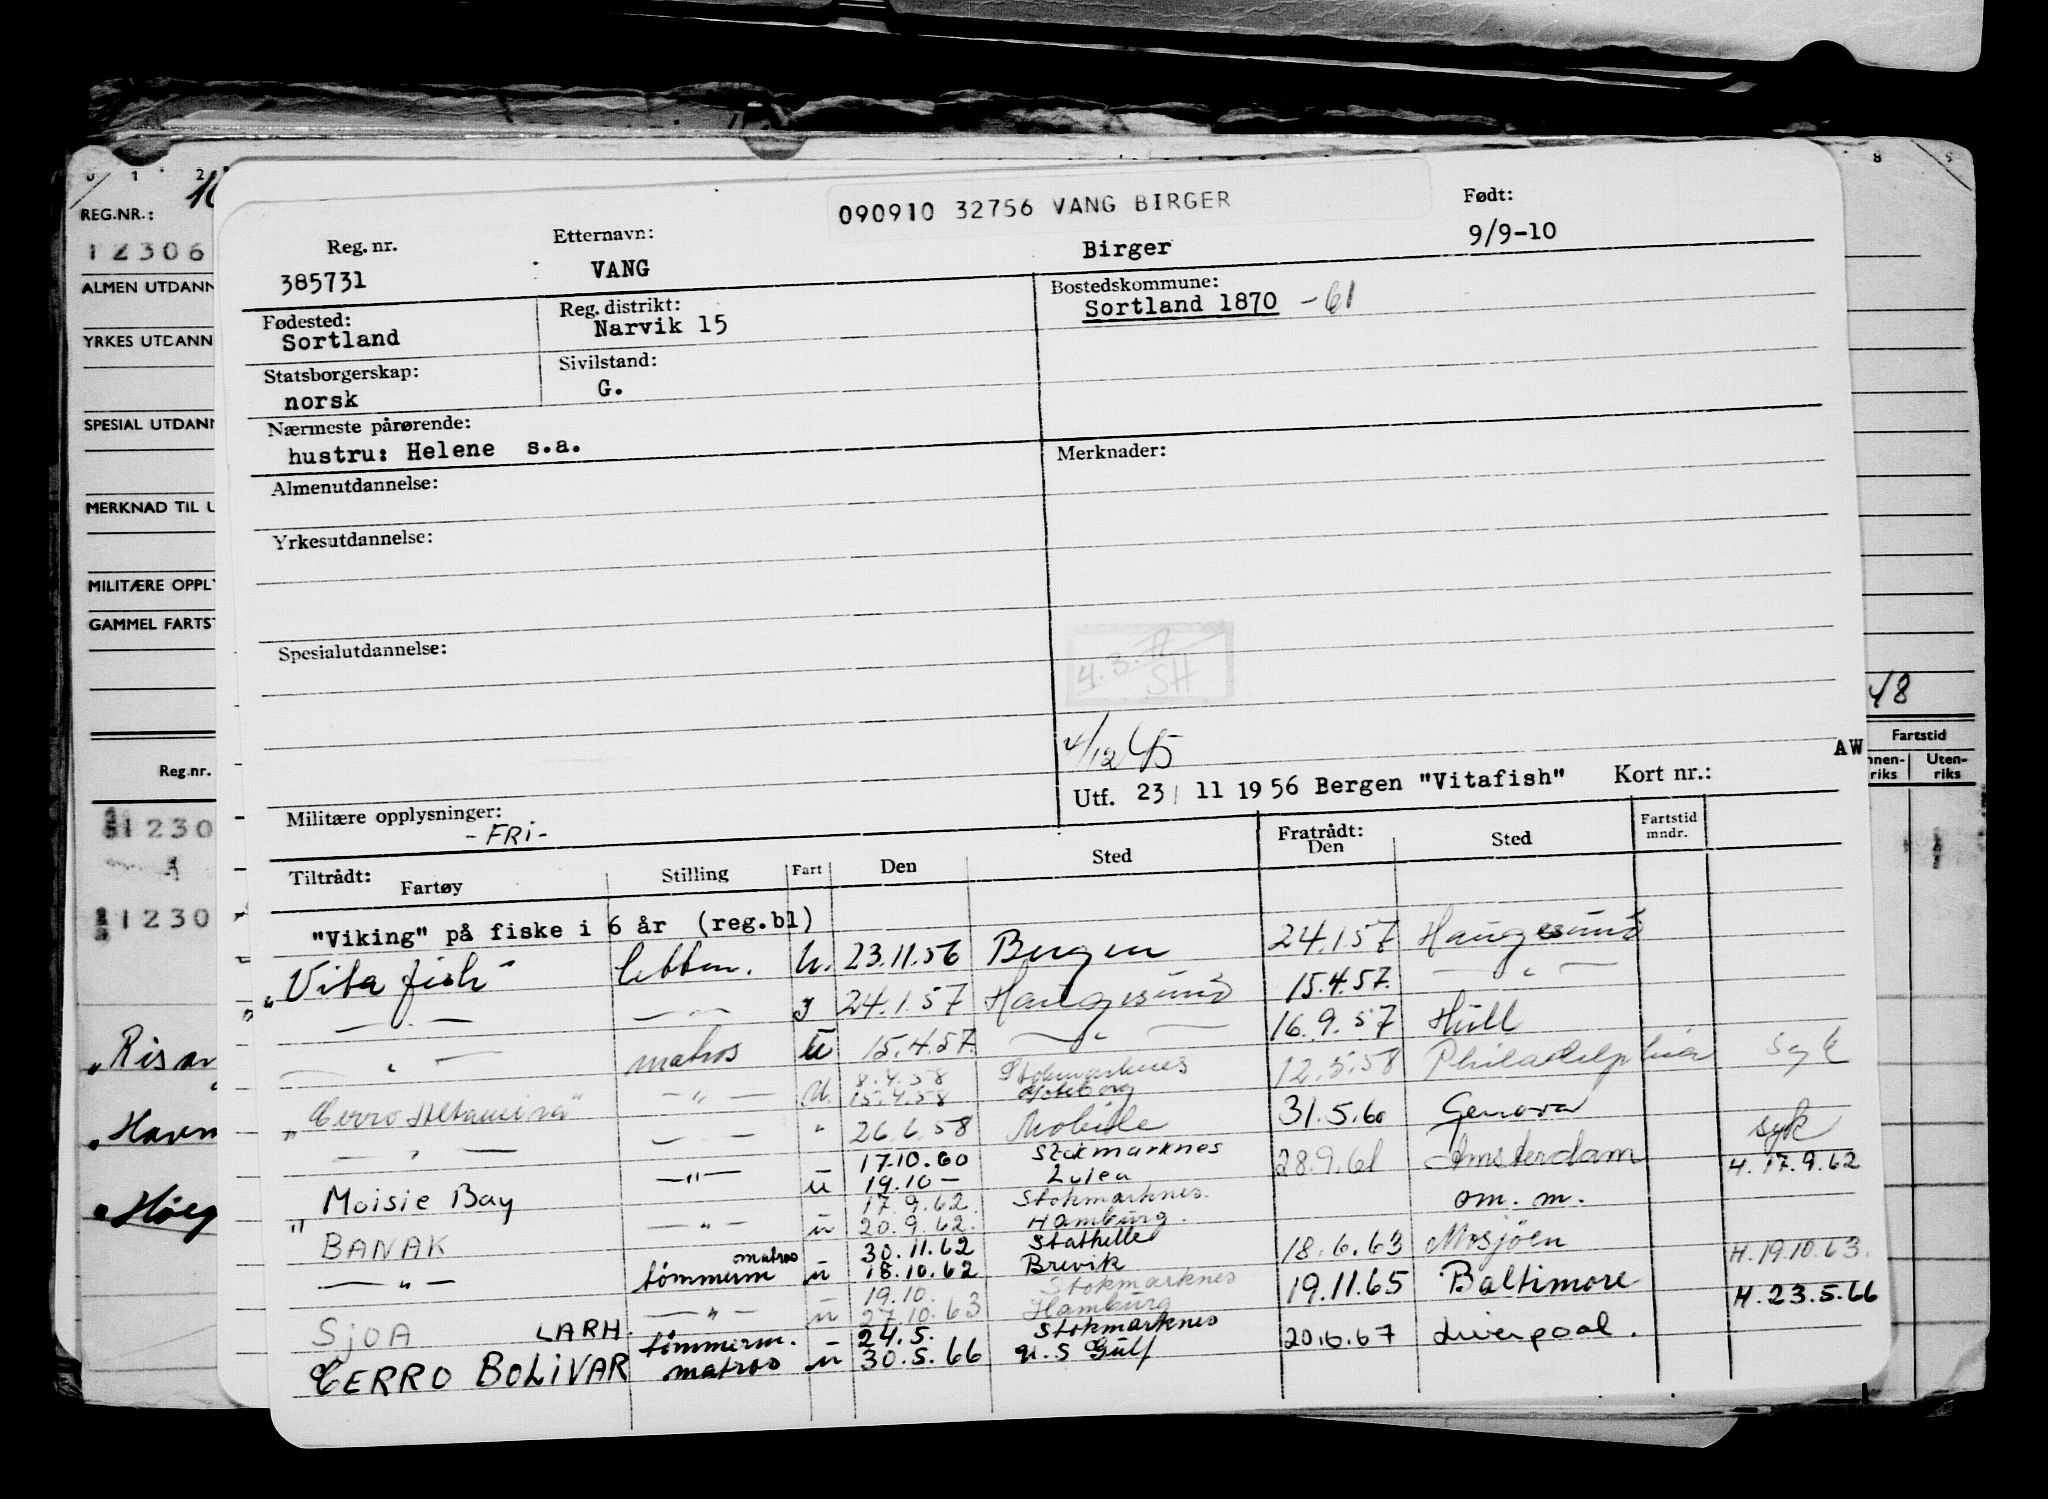 090910 32756 VANG BIRGER
Reg. nr. Etternavn: Født:
385731 VANG Birger 9/9-10
Fødested: Reg. distrikt: Bostedskommune:
Sortland Narvik 15 Sortland 1870 -61
Statsborgerskap: Sivilstand:
norsk G.
Nærmeste pårørende:
hustru: Helene s.a. Merknader:
Almenutdannelse:
Yrkesutdannelse:
Spesialutdannelse:
SH
4/12 45
AW
Utf. 23 11 1956 Bergen "Vitafish" Kort nr.:
Militære opplysninger:
-FRI-
Tiltrådt: Fartøy Stilling Fart Den Sted Fratrådt: Den Sted Fartstid mndr.
"Viking" på fiske i 6 år (reg.bl)
"Vitafish" U. 23.11.56 Bergen 24.1.57 Haugesund
— " — — " — 24.1.57 Haugesund 15.4.57. — " —
— " — matros U 15.4.57. — " — 16.9.57 Hull
8.4.58 Stokmarknes
"Cerro Altamira" — " — U. 15.4.58 Gøteborg 12.5.58 Philadelphia syk
— " — — " — " 26.6.58 Mobile 31.5.60 Genova
17.10.60 Stokmarknes syk
" Moisie Bay — " — U 19.10 — Lulea 28.9.61 Amsterdam H. 17.9.62
17.9.62. Stokmarknes.
BANAK — " — U 20.9.62. Hamburg. om. m.
matros 30.11.62 Stathelle
— " — tømmerm U 18.10.62 Brevik 18.6.63 Mosjøen H. 19.10.63.
19.10. Stokmarknes
SJOA — " — U 27.10.63 Hamburg 19.11.65 Baltimore H. 23.5.66
LARH. tømmerm. 24.5. Stokmarknes
CERRO BOLIVAR matros U 30.5.66 U.S Gulf 20.6.67 Liverpool.
0 1 2
REG.NR.:
12306
ALMEN UTDANN
YRKES UTDANN
SPESIAL UTDANN
MERKNAD TIL U
MILITÆRE OPPLY
GAMMEL FARTST
Reg.nr.
1230
1230
"Risan
"Havn
"Höeg
8 9
48
Fartstid
nnen-
riks
Uten-
riks